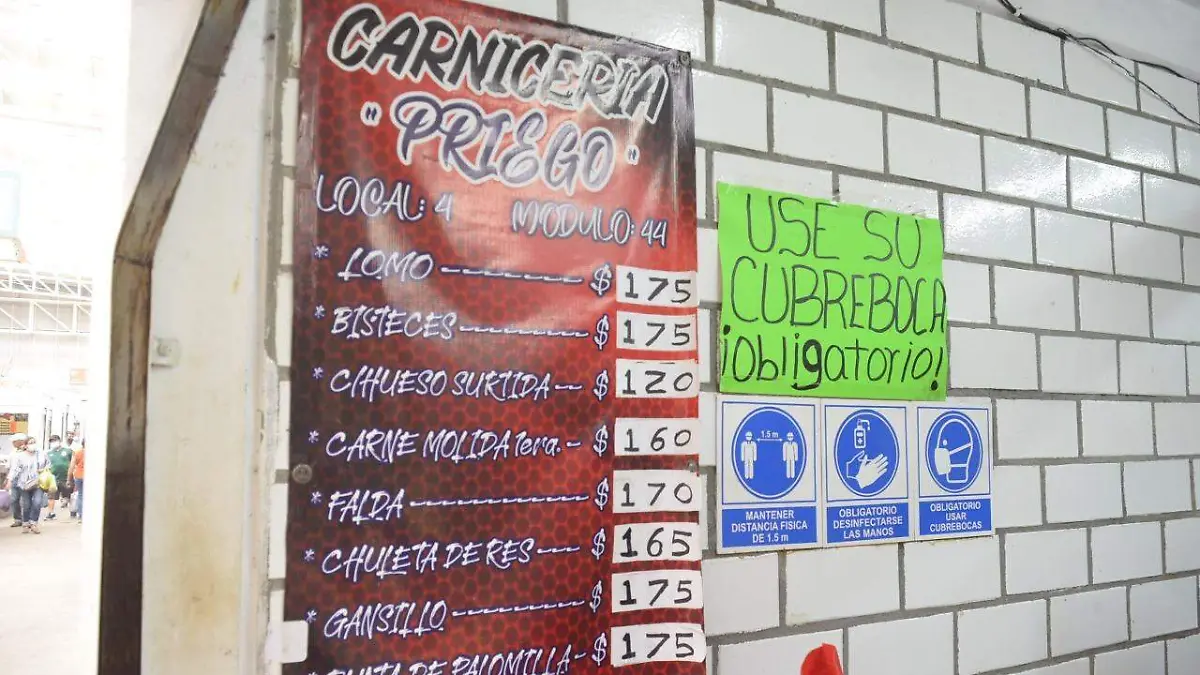 CARNICERIA
"PRIEGO"
LOCAL: 4 MODULO: 44
* LOMO $ 175
* BISTECES $ 175
* CHUESO SURTIDA $ 120
* CARNE MOLIDA 1era. $ 160
* FALDA $ 170
* CHULETA DE RES $ 165
* GANSILLO $ 175
DE PALOMILLA $ 175
USE SU
CUBREBOCA
¡obligatorio!
1.5 m
MANTENER
DISTANCIA FISICA
DE 1.5 m
OBLIGATORIO
DESINFECTARSE
LAS MANOS
OBLIGATORIO
USAR
CUBREBOCAS